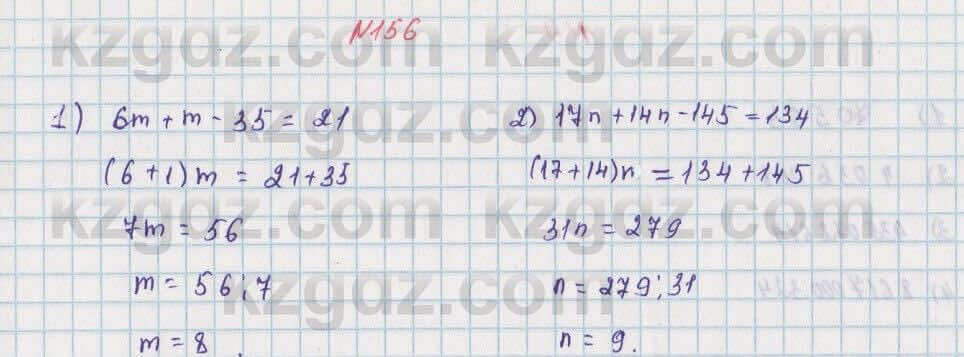 kzgdz.com kzgdz.com
N156
1) 6m + m - 35 = 21
(6 + 1)m = 21 + 35
7m = 56
m = 56 : 7
m = 8.
2) 17n + 14n - 145 = 134
(17 + 14)n = 134 + 145
31n = 279
n = 279 : 31
n = 9.
kzgdz.com kzgdz.com
kzgdz.com kzgdz.com
kzgdz.com kzgdz.com